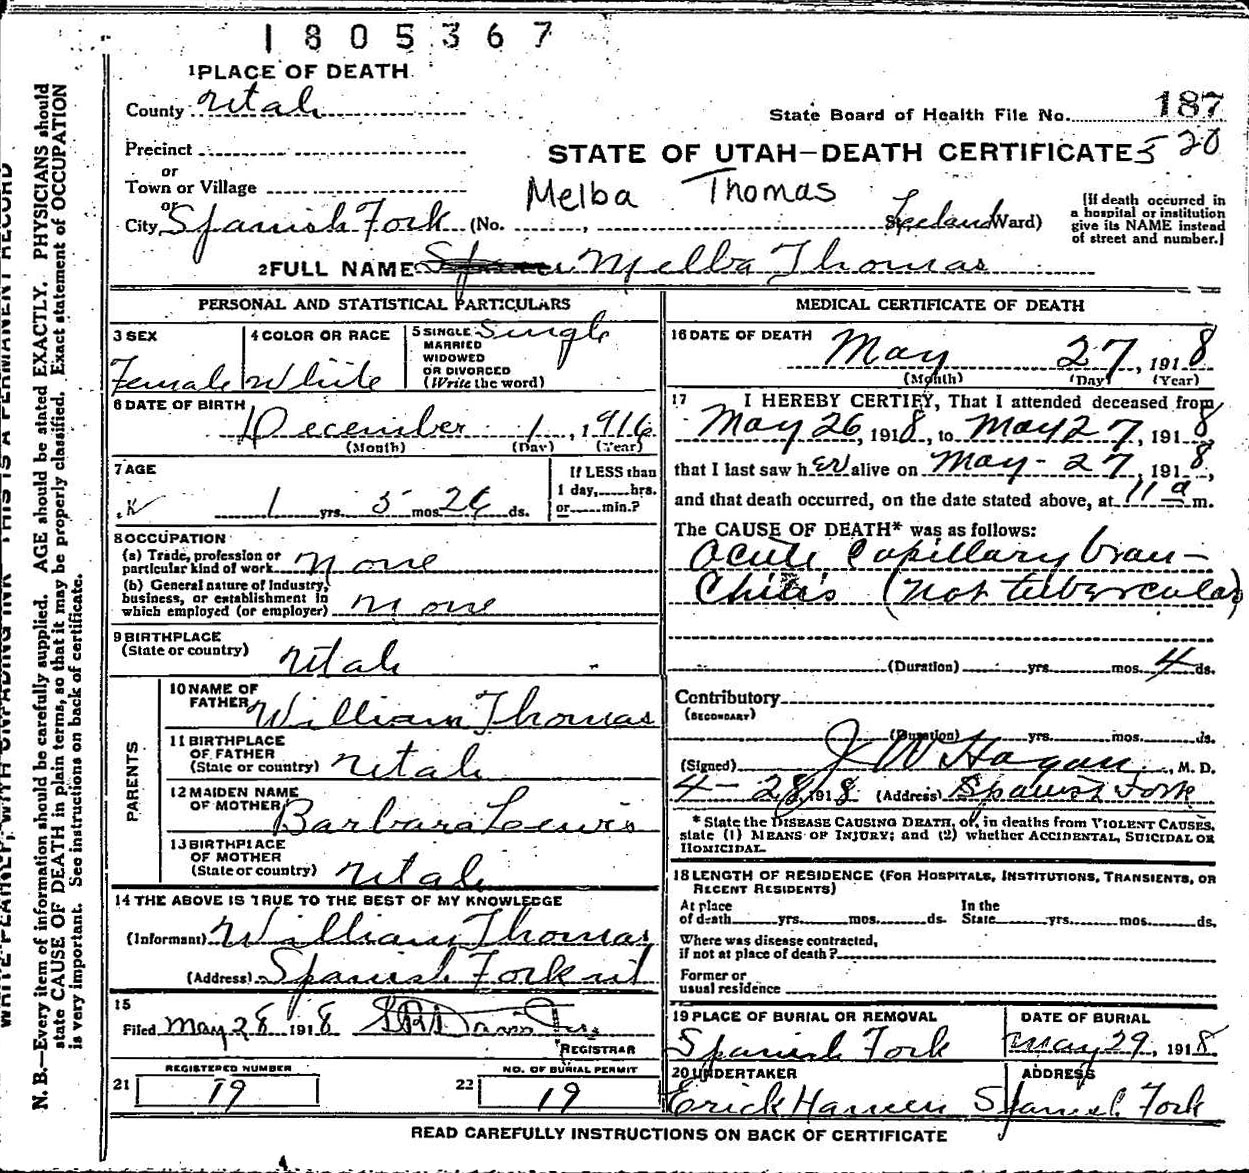 1805367
1 PLACE OF DEATH
County Utah
State Board of Health File No. 187
Precinct
520
or
STATE OF UTAH—DEATH CERTIFICATE
Town or Village
Melba Thomas
or
City Spanish Fork (No. , Leeland Ward)
[If death occurred in
a hospital or institution
give its NAME instead
of street and number.]
2 FULL NAME Melba Thomas
PERSONAL AND STATISTICAL PARTICULARS
3 SEX
Female
4 COLOR OR RACE
White
5 SINGLE Single
MARRIED
WIDOWED
OR DIVORCED
(Write the word)
6 DATE OF BIRTH
December 1, 1916
(Month) (Day) (Year)
7 AGE
1 yrs. 5 mos. 26 ds.
If LESS than
1 day,......hrs.
or......min.?
8 OCCUPATION
(a) Trade, profession or
particular kind of work none
(b) General nature of Industry,
business, or establishment in
which employed (or employer) none
9 BIRTHPLACE
(State or country) Utah
PARENTS
10 NAME OF
FATHER William Thomas
11 BIRTHPLACE
OF FATHER
(State or country) Utah
12 MAIDEN NAME
OF MOTHER Barbara Lewis
13 BIRTHPLACE
OF MOTHER
(State or country) Utah
14 THE ABOVE IS TRUE TO THE BEST OF MY KNOWLEDGE
(Informant) William Thomas
(Address) Spanish Fork ut
15
Filed May 28 1918
REGISTRAR
REGISTERED NUMBER
21 19
NO. OF BURIAL PERMIT
22 19
MEDICAL CERTIFICATE OF DEATH
16 DATE OF DEATH
May 27, 1918
(Month) (Day) (Year)
17 I HEREBY CERTIFY, That I attended deceased from
May 26, 1918, to May 27, 1918
that I last saw her alive on May - 27, 1918,
and that death occurred, on the date stated above, at 11 a m.
The CAUSE OF DEATH* was as follows:
Acute Capillary bron-
chitis (not tubercular)
(Duration) yrs. mos. 4 ds.
Contributory
(SECONDARY)
(Duration) yrs. mos. ds.
(Signed) J W Hagan, M. D.
4-28, 1918 (Address) Spanish Fork
* State the DISEASE CAUSING DEATH, or, in deaths from VIOLENT CAUSES,
state (1) MEANS OF INJURY; and (2) whether ACCIDENTAL, SUICIDAL OR
HOMICIDAL.
18 LENGTH OF RESIDENCE (FOR HOSPITALS, INSTITUTIONS, TRANSIENTS, OR
RECENT RESIDENTS)
At place In the
of death yrs. mos. ds. State yrs. mos. ds.
Where was disease contracted,
if not at place of death?
Former or
usual residence
19 PLACE OF BURIAL OR REMOVAL
Spanish Fork
DATE OF BURIAL
May 29, 1918
20 UNDERTAKER
Erick Hansen
ADDRESS
Spanish Fork
READ CAREFULLY INSTRUCTIONS ON BACK OF CERTIFICATE
N. B.—Every item of information should be carefully supplied. AGE should be stated EXACTLY. PHYSICIANS should
state CAUSE OF DEATH in plain terms, so that it may be properly classified. Exact statement of OCCUPATION
is very important. See instructions on back of certificate.